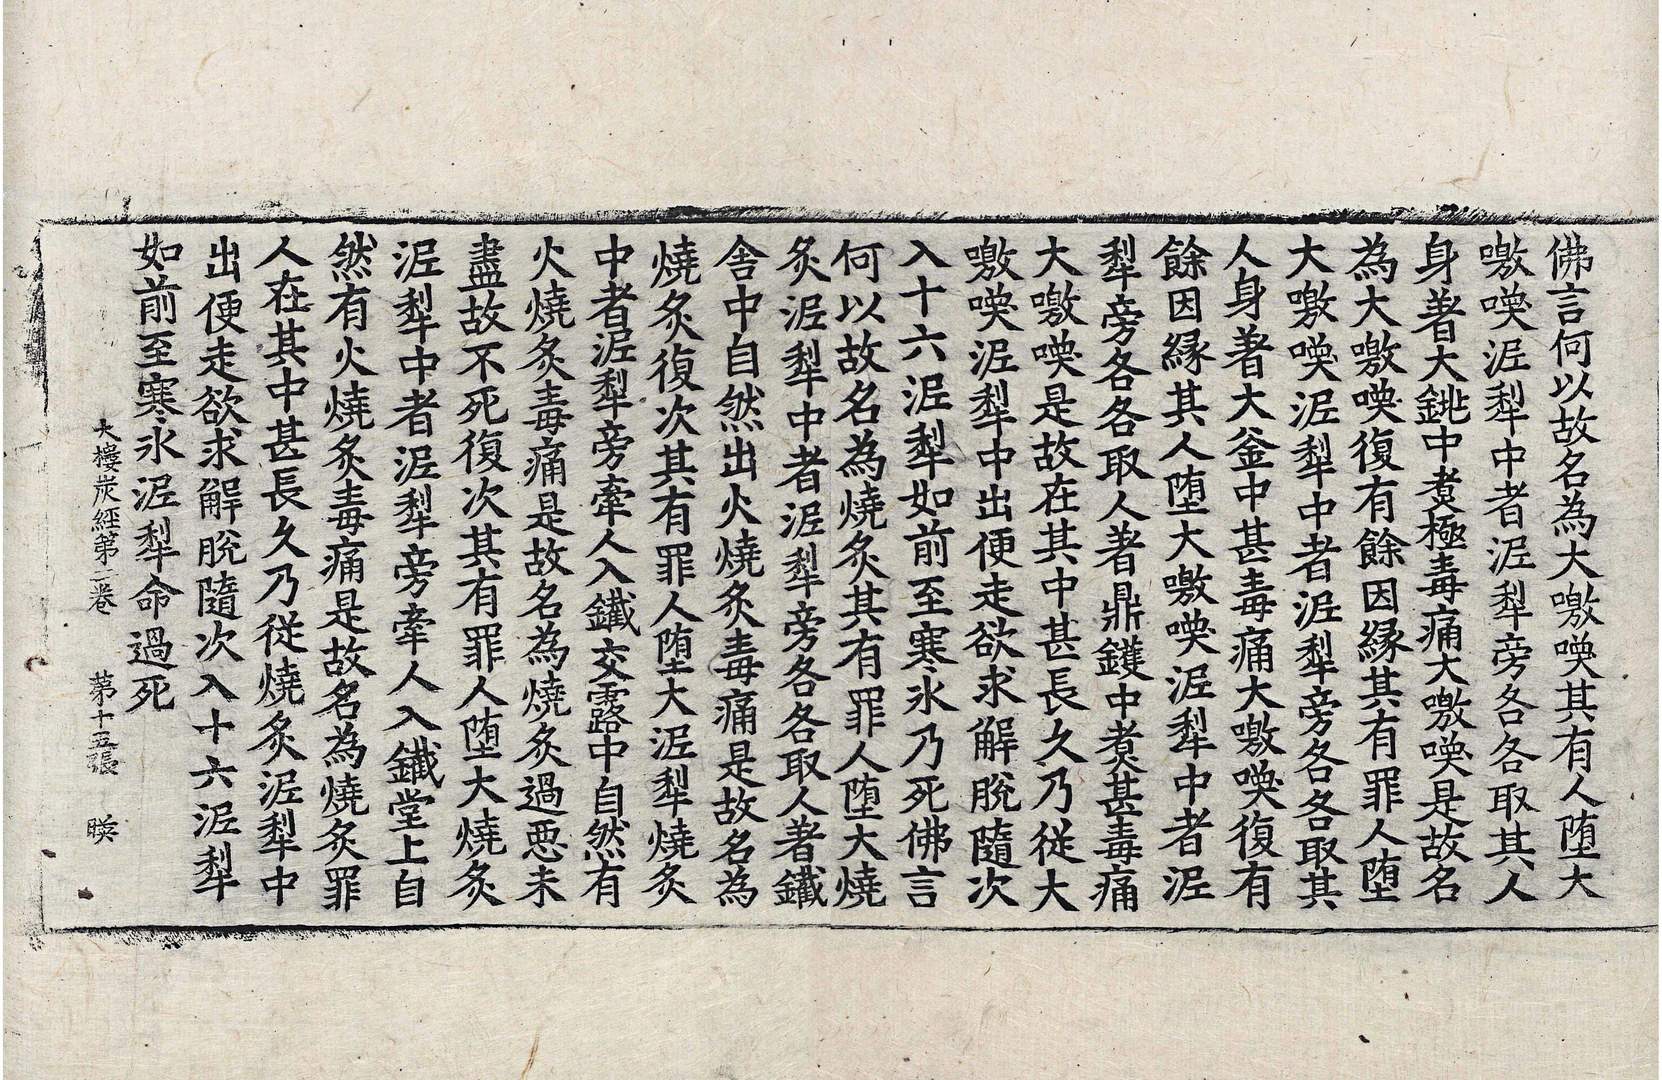 佛言何以故名為大噭喚其有人堕大
噭喚泥犁中者泥犁旁各各取其人
身著大銚中煑極毒痛大噭喚是故名
為大噭喚復有餘因縁其有罪人堕
大噭喚泥犁中者泥犁旁各各取其
人身著大釜中甚毒痛大噭喚復有
餘因縁其人堕大噭喚泥犁中者泥
犁旁各各取人著鼎鑊中煑甚毒痛
大噭喚是故在其中甚長久乃従大
噭喚泥犁中出便走欲求解脫隨次
入十六泥犁如前至寒氷乃死佛言
何以故名為燒炙其有罪人堕大燒
炙泥犁中者泥犁旁各各取人著鐵
舍中自然出火燒炙毒痛是故名為
燒炙復次其有罪人堕大泥犁燒炙
中者泥犁旁牽人入鐵交露中自然有
火燒炙毒痛是故名為燒炙過惡未
盡故不死復次其有罪人堕大燒炙
泥犁中者泥犁旁牽人入鐵堂上自
然有火燒炙毒痛是故名為燒炙罪
人在其中甚長久乃従燒炙泥犁中
出便走欲求解脫隨次入十六泥犁
如前至寒氷泥犁命過死
大樓炭經第二卷 苐十五張 暎